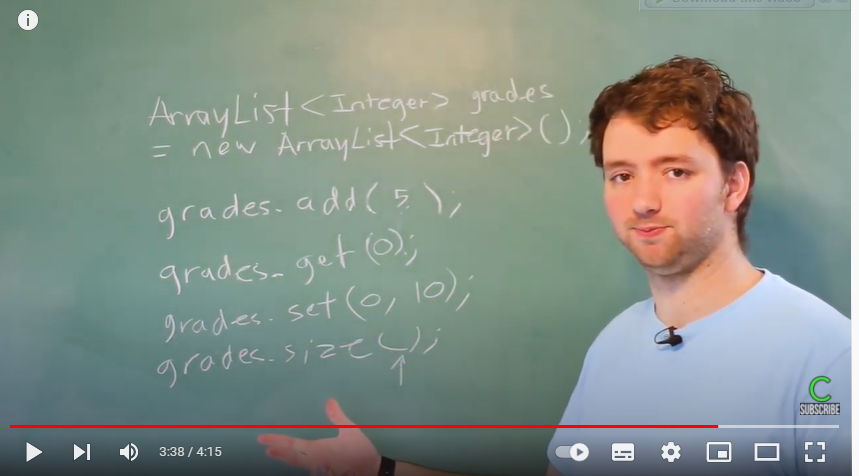 ArrayList<Integer> grades
= new ArrayList<Integer>();
grades.add(5);
grades.get(0);
grades.set(0, 10);
grades.size();
C
SUBSCRIBE
3:38 / 4:15